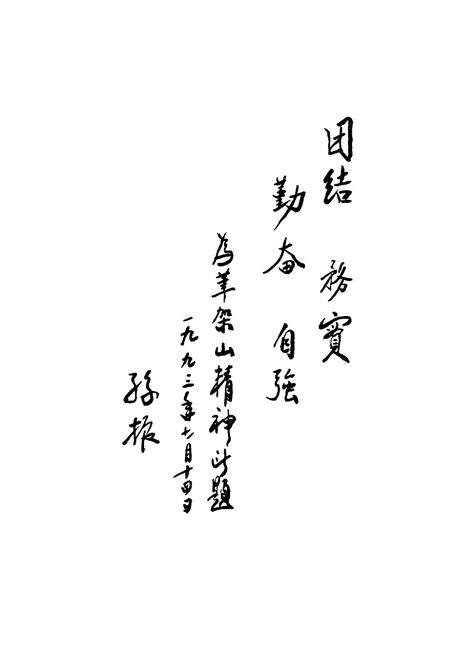 团结 務實
勤奋 自強
為笔架山精神此題
一九九三年七月十四日
孫振